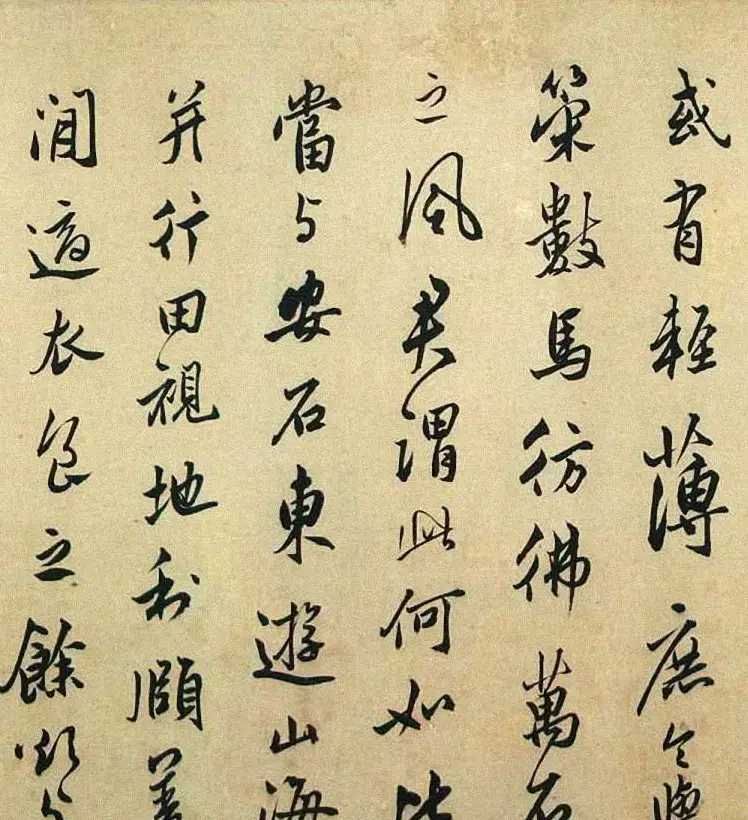 或有輕薄庶令舉
策數馬彷彿萬石
之風君謂此何如比
當与安石東遊山海
并行田視地利頤養
閒適衣食之餘欲与